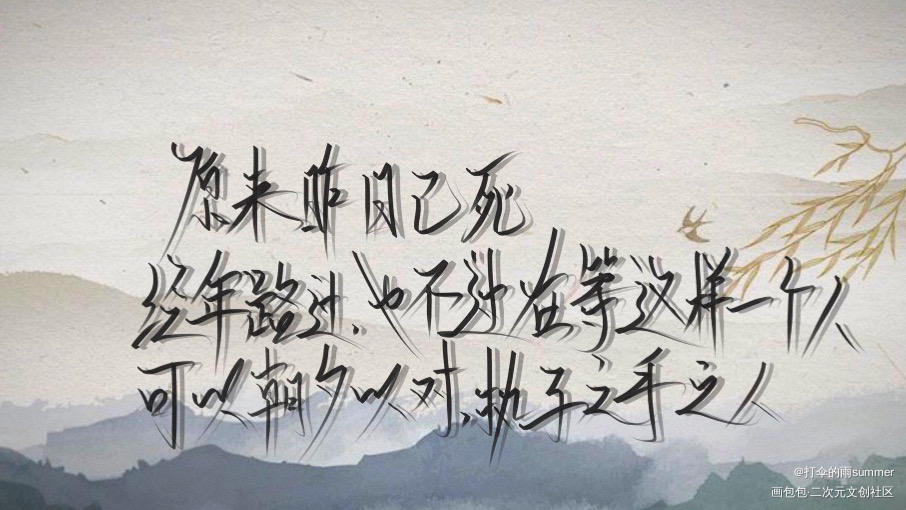 原来昨日已死
经年路过、也不过在等这样一个人
可以朝夕以对、执子之手之人
@打伞的雨summer
画包包·二次元文创社区